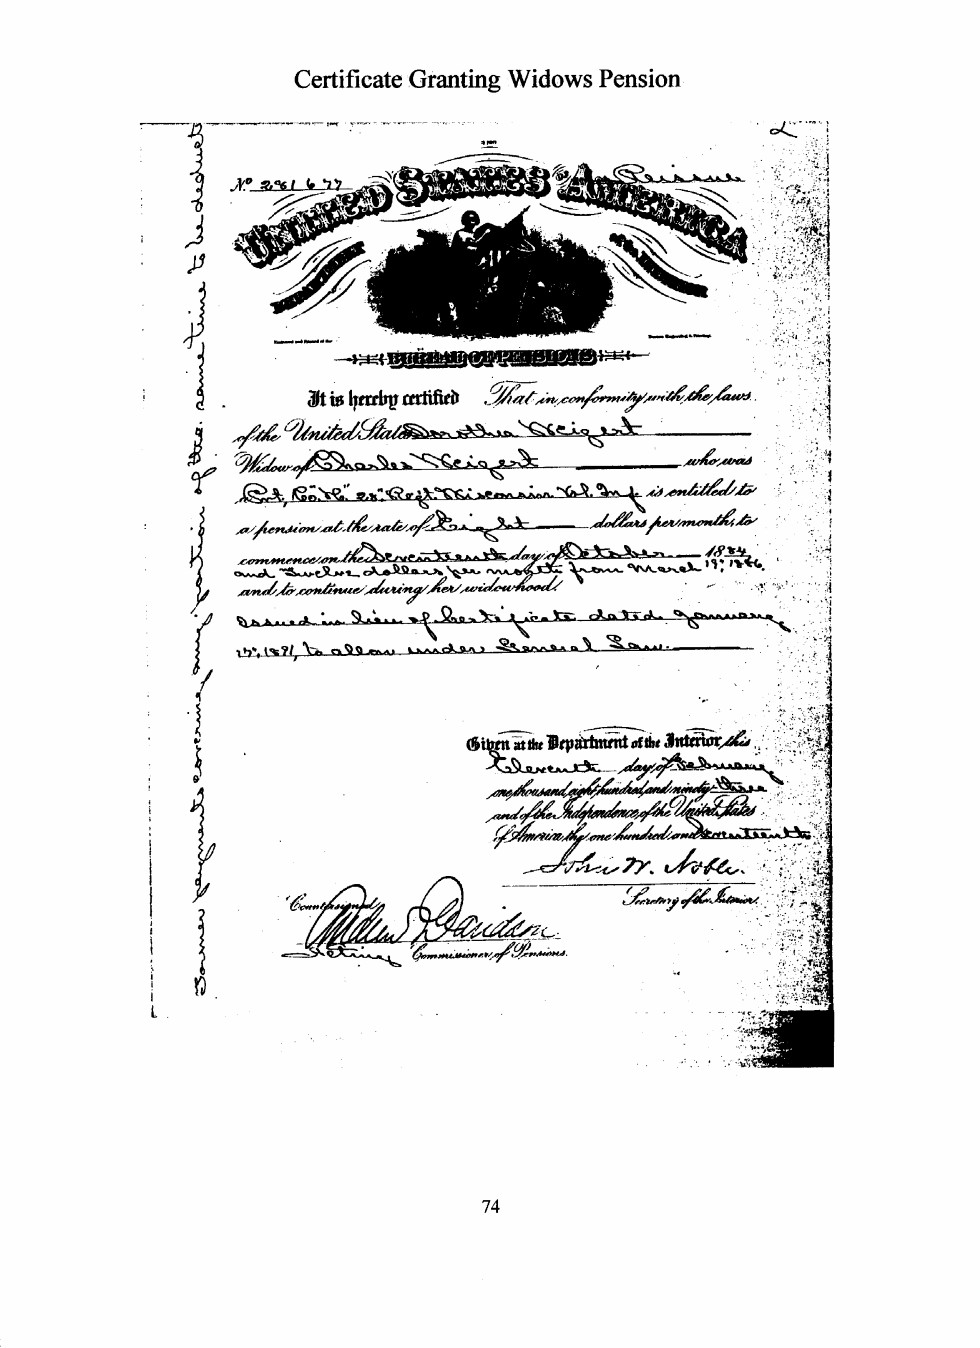 Certificate Granting Widows Pension
2
3-1081
Nº 281677
Reissue
UNITED STATES OF AMERICA
DEPARTMENT of the INTERIOR
BUREAU OF PENSIONS
It is hereby certified That in conformity with the laws
of the United States Dorothea Weigert
Widow of Charles Weigert who was
Pvt, Co. "H" 28" Regt. Wisconsin Vol. Inf. is entitled to
a pension at the rate of Eight dollars per month, to
commence on the Seventeenth day of October 1884
and Twelve dollars per month from March 19, 1886,
and to continue during her widowhood.
Issued in lieu of Certificate dated January
17, 1891, to allow under General Law.
Given at the Department of the Interior this
Eleventh day of February
one thousand eight hundred and ninety-three
and of the Independence of the United States
of America the one hundred and Seventeenth
John W. Noble.
Secretary of the Interior.
Countersigned,
Andrew Davidson
Acting Commissioner of Pensions.
Former payments covering any portion of the same time to be deducted
74